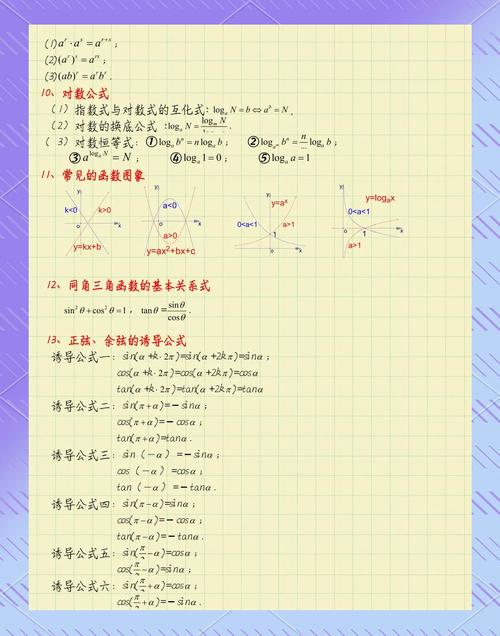 (1) aʳ·aˢ = aʳ⁺ˢ；
(2)(aʳ)ˢ = aʳˢ；
(3)(ab)ʳ = aʳbʳ.
10、对数公式
(1) 指数式与对数式的互化式：logₐ N = b ⇔ aᵇ = N.
(2) 对数的换底公式：logₐ N = logₘ N
(3) 对数恒等式：①logₐ bⁿ = n logₐ b； ②log_{aᵐ} bⁿ = n/m logₐ b；
③a^{logₐ N} = N； ④logₐ 1 = 0； ⑤logₐ a = 1
11、常见的函数图象
k<0 k>0 y=kx+b
a<0 a>0 y=ax²+bx+c
y=aˣ 0<a<1 a>1 1
y=logₐx 0<a<1 a>1 1
12、同角三角函数的基本关系式
sin²θ+cos²θ=1，tanθ=sinθ/cosθ.
13、正弦、余弦的诱导公式
诱导公式一：sin(α+k·2π)=sin(α+2kπ)=sinα；
cos(α+k·2π)=cos(α+2kπ)=cosα
tan(α+k·2π)=tan(α+2kπ)=tanα
诱导公式二：sin(π+α)=－sinα；
cos(π+α)=－cosα；
tan(π+α)=tanα.
诱导公式三：sin（－α）=－sinα；
cos（－α）=cosα；
tan（－α）=－tanα.
诱导公式四：sin(π－α)=sinα；
cos(π－α)=－cosα；
tan(π－α)=－tanα.
诱导公式五：sin(π/2－α)=cosα；
cos(π/2－α)=sinα；
诱导公式六：sin(π/2+α)=cosα；
cos(π/2+α)=－sinα.